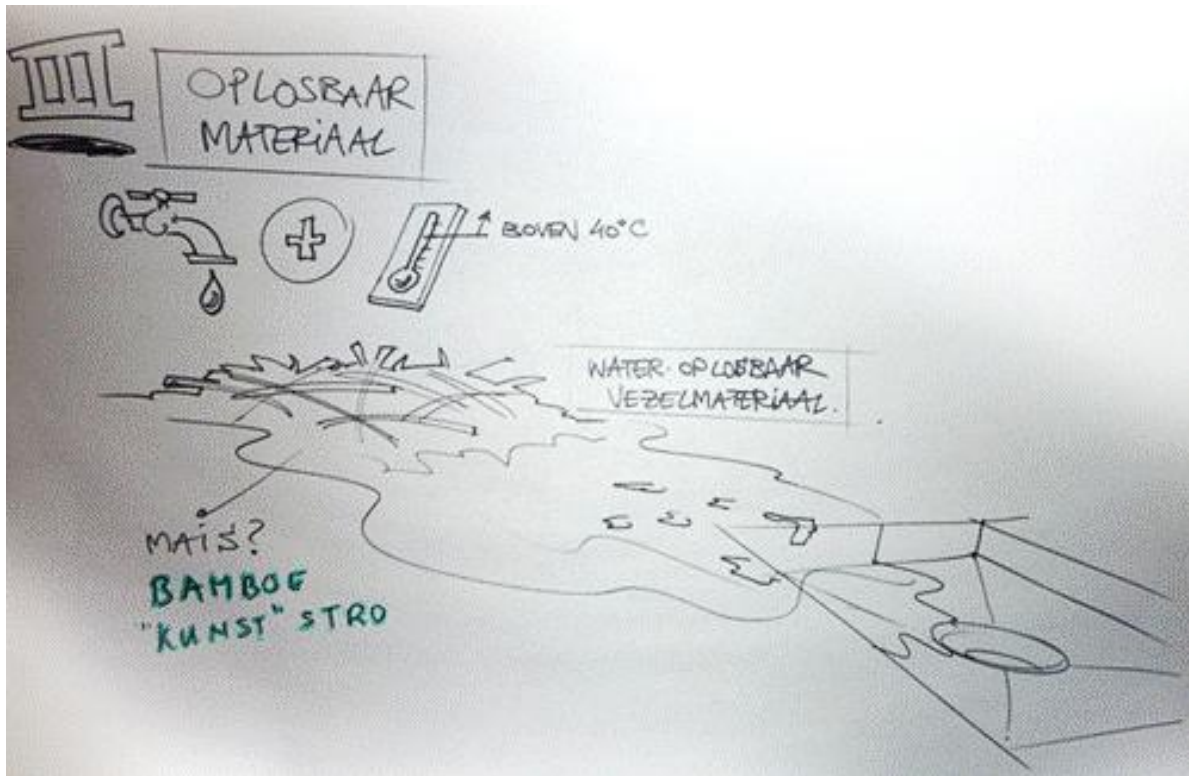 III
OPLOSBAAR
MATERIAAL
BOVEN 40°C
WATER OPLOSBAAR
VEZELMATERIAAL.
MAIS?
BAMBOE
"KUNST" STRO